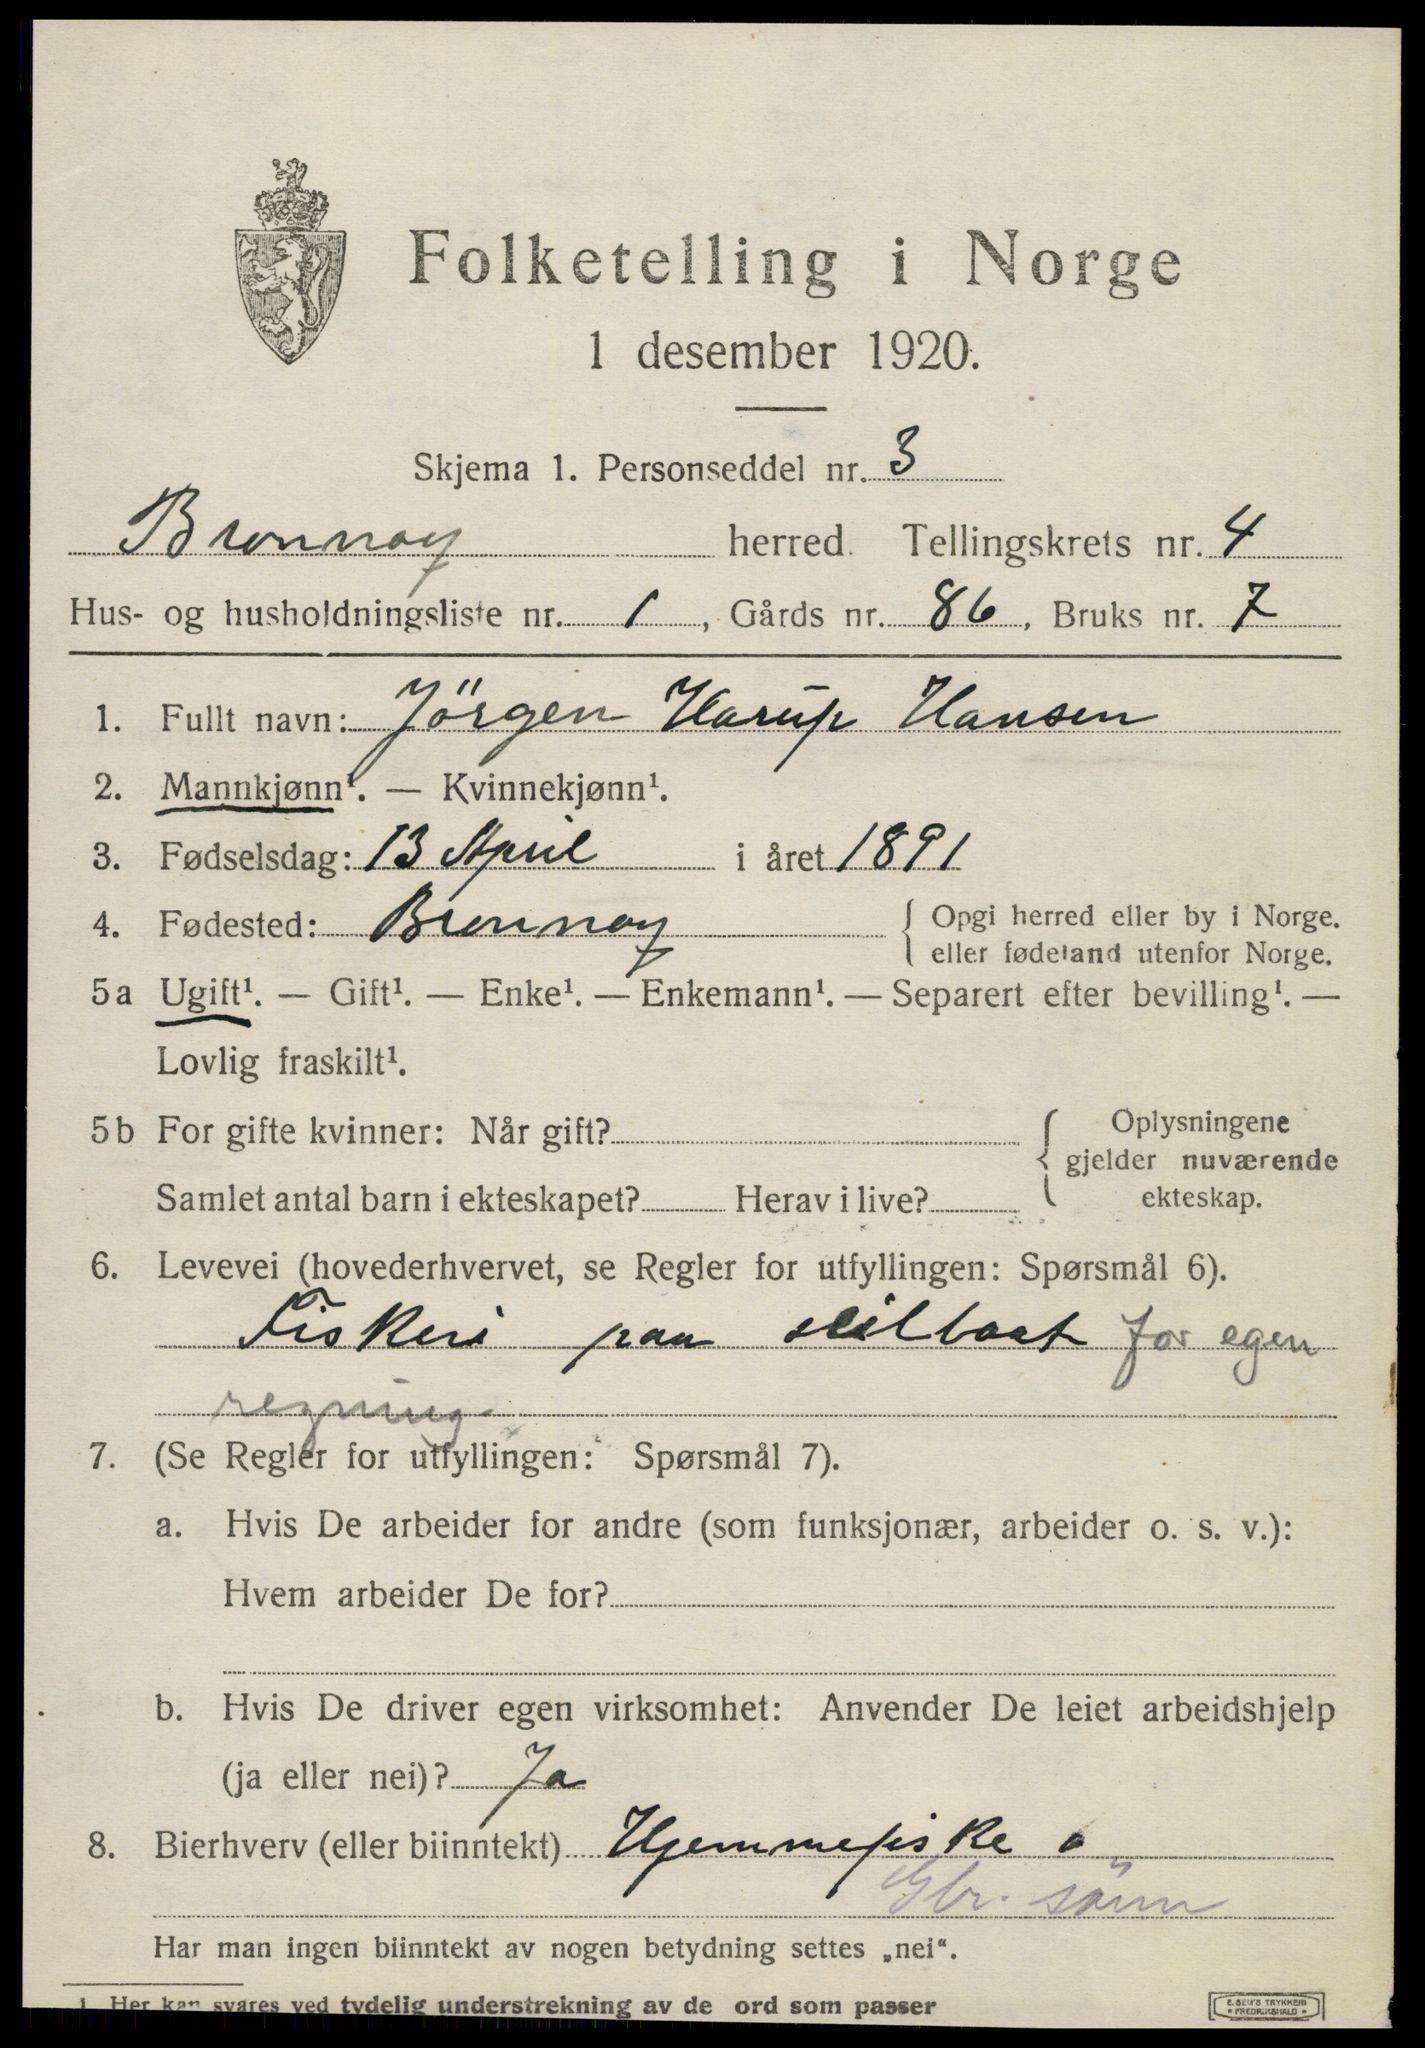 Folketelling i Norge
1 desember 1920.
Skjema 1. Personseddel nr. 3
Bronnoy herred. Tellingskrets nr. 4
Hus- og husholdningsliste nr. 1, Gårds nr. 86, Bruks nr. 7
1. Fullt navn: Jörgen Harup Hansen
2. Mannkjønn¹. — Kvinnekjønn¹.
3. Fødselsdag: 13 April i året 1891
4. Fødested: Bronnoy { Opgi herred eller by i Norge.
eller fødeland utenfor Norge.
5a Ugift¹. — Gift¹. — Enke¹. — Enkemann¹. — Separert efter bevilling¹. —
Lovlig fraskilt¹.
5b For gifte kvinner: Når gift? { Oplysningene
gjelder nuværende
Samlet antal barn i ekteskapet? Herav i live? ekteskap.
6. Levevei (hovederhvervet, se Regler for utfyllingen: Spørsmål 6).
Fiskeri paa seilbaat for egen
regning.
7. (Se Regler for utfyllingen: Spørsmål 7).
a. Hvis De arbeider for andre (som funksjonær, arbeider o. s. v.):
Hvem arbeider De for?
b. Hvis De driver egen virksomhet: Anvender De leiet arbeidshjelp
(ja eller nei)? Ja
8. Bierhverv (eller biinntekt) Hjemmefiske o
Gbr. sönn
Har man ingen biinntekt av nogen betydning settes „nei“.
1 Her kan svares ved tydelig understrekning av de ord som passer
E. SEM'S TRYKKERI
FREDRIKSHALD